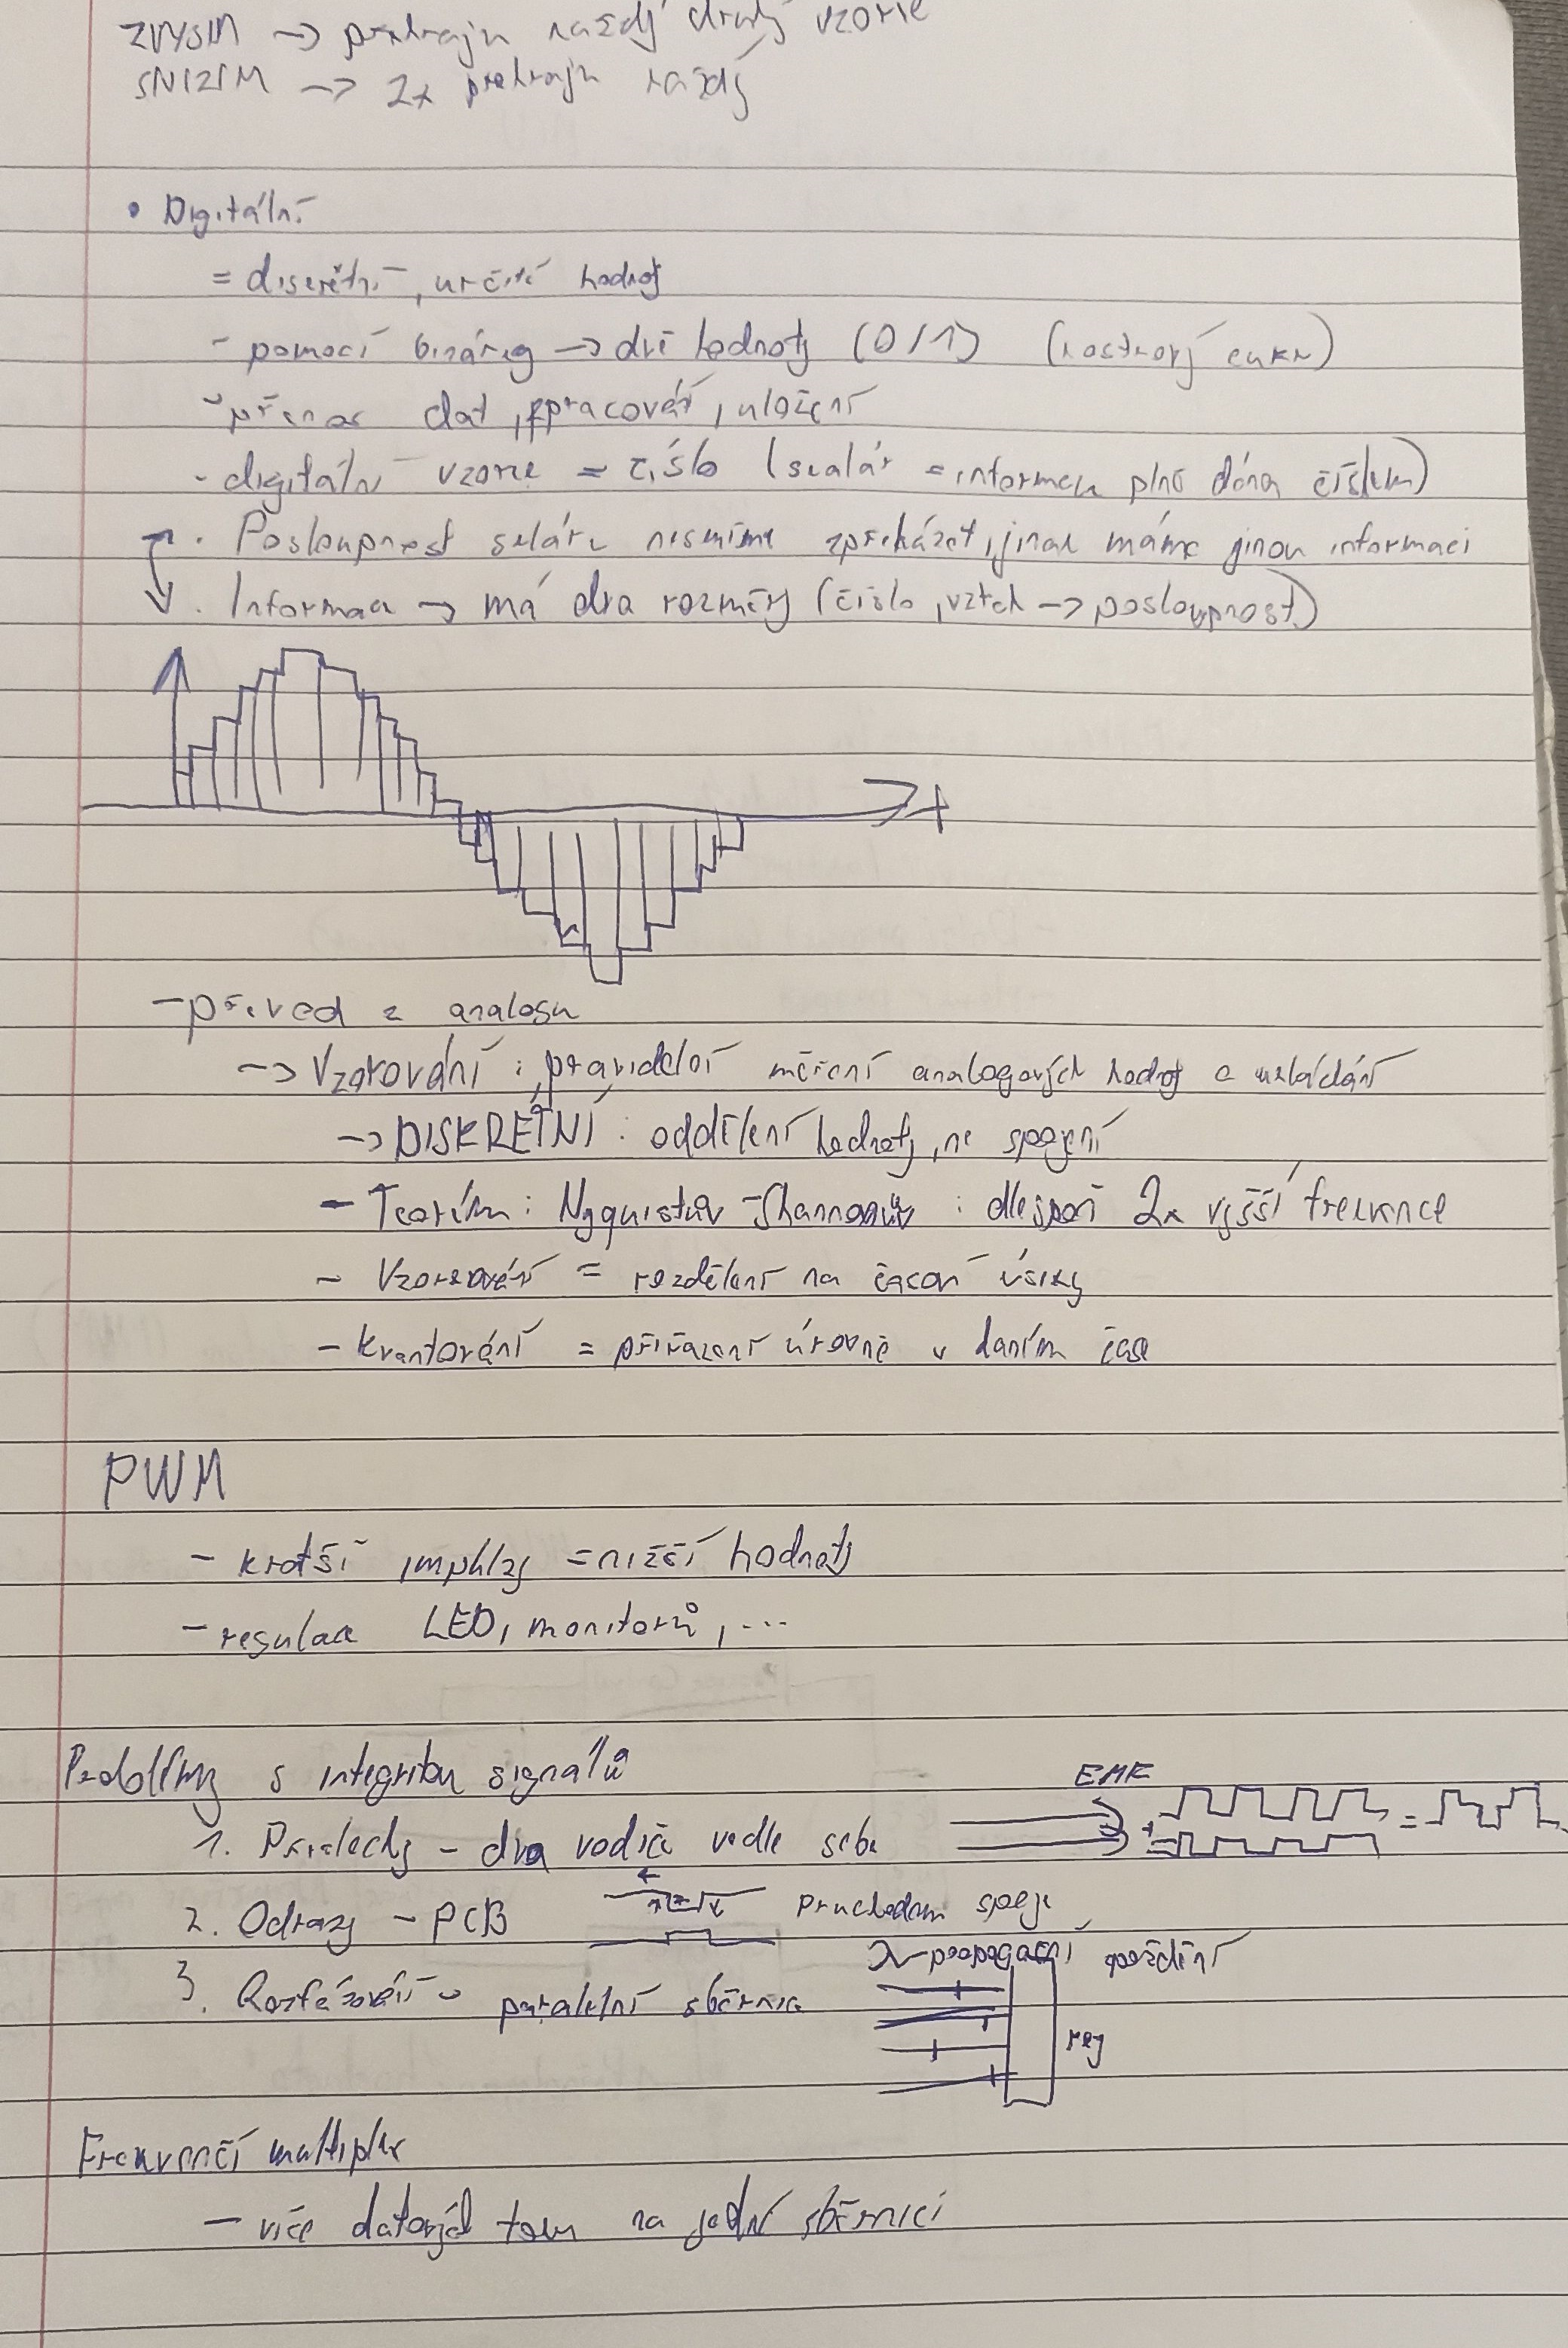 ZVÝŠÍM → přehraju každý druhý vzorek
SNÍŽÍM → 2x přehraju každý
• Digitální
= diskrétní, určité hodnoty
- pomocí binárky → dvě hodnoty (0/1) (kostkový cukr)
- přenos dat, zpracování, uložení
- digitální vzorek = číslo (skalár = informace plně dána číslem)
• Posloupnost skalárů nesmíme zpřeházet, jinak máme jinou informaci
• Informace → má dva rozměry (číslo, vztah → posloupnost)
t
- převod z analogu
→ Vzorkování : pravidelné měření analogových hodnot a ukládání
→ DISKRÉTNÍ : oddělení hodnoty, ne spojení
- Teorém : Nyquistův - Shannonův : alespoň 2x vyšší frekvence
- Vzorkování = rozdělení na časové úseky
- kvantování = přiřazení úrovně v daném čase
PWM
- kratší impulzy = nižší hodnoty
- regulace LED, monitorů, ...
Problémy s integritou signálů
EMK
1. Přeslechy - dva vodiče vedle sebe
+ =
2. Odrazy - PCB
průchodem spoje
3. Rozfázování - paralelní sběrnice
propagační zpoždění
reg
Frekvenční multiplex
- více datových toků na jedné sběrnici